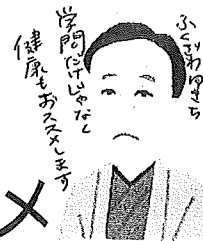 ふくざわゆきち
学問だけじゃなく
健康もおススメします
メ